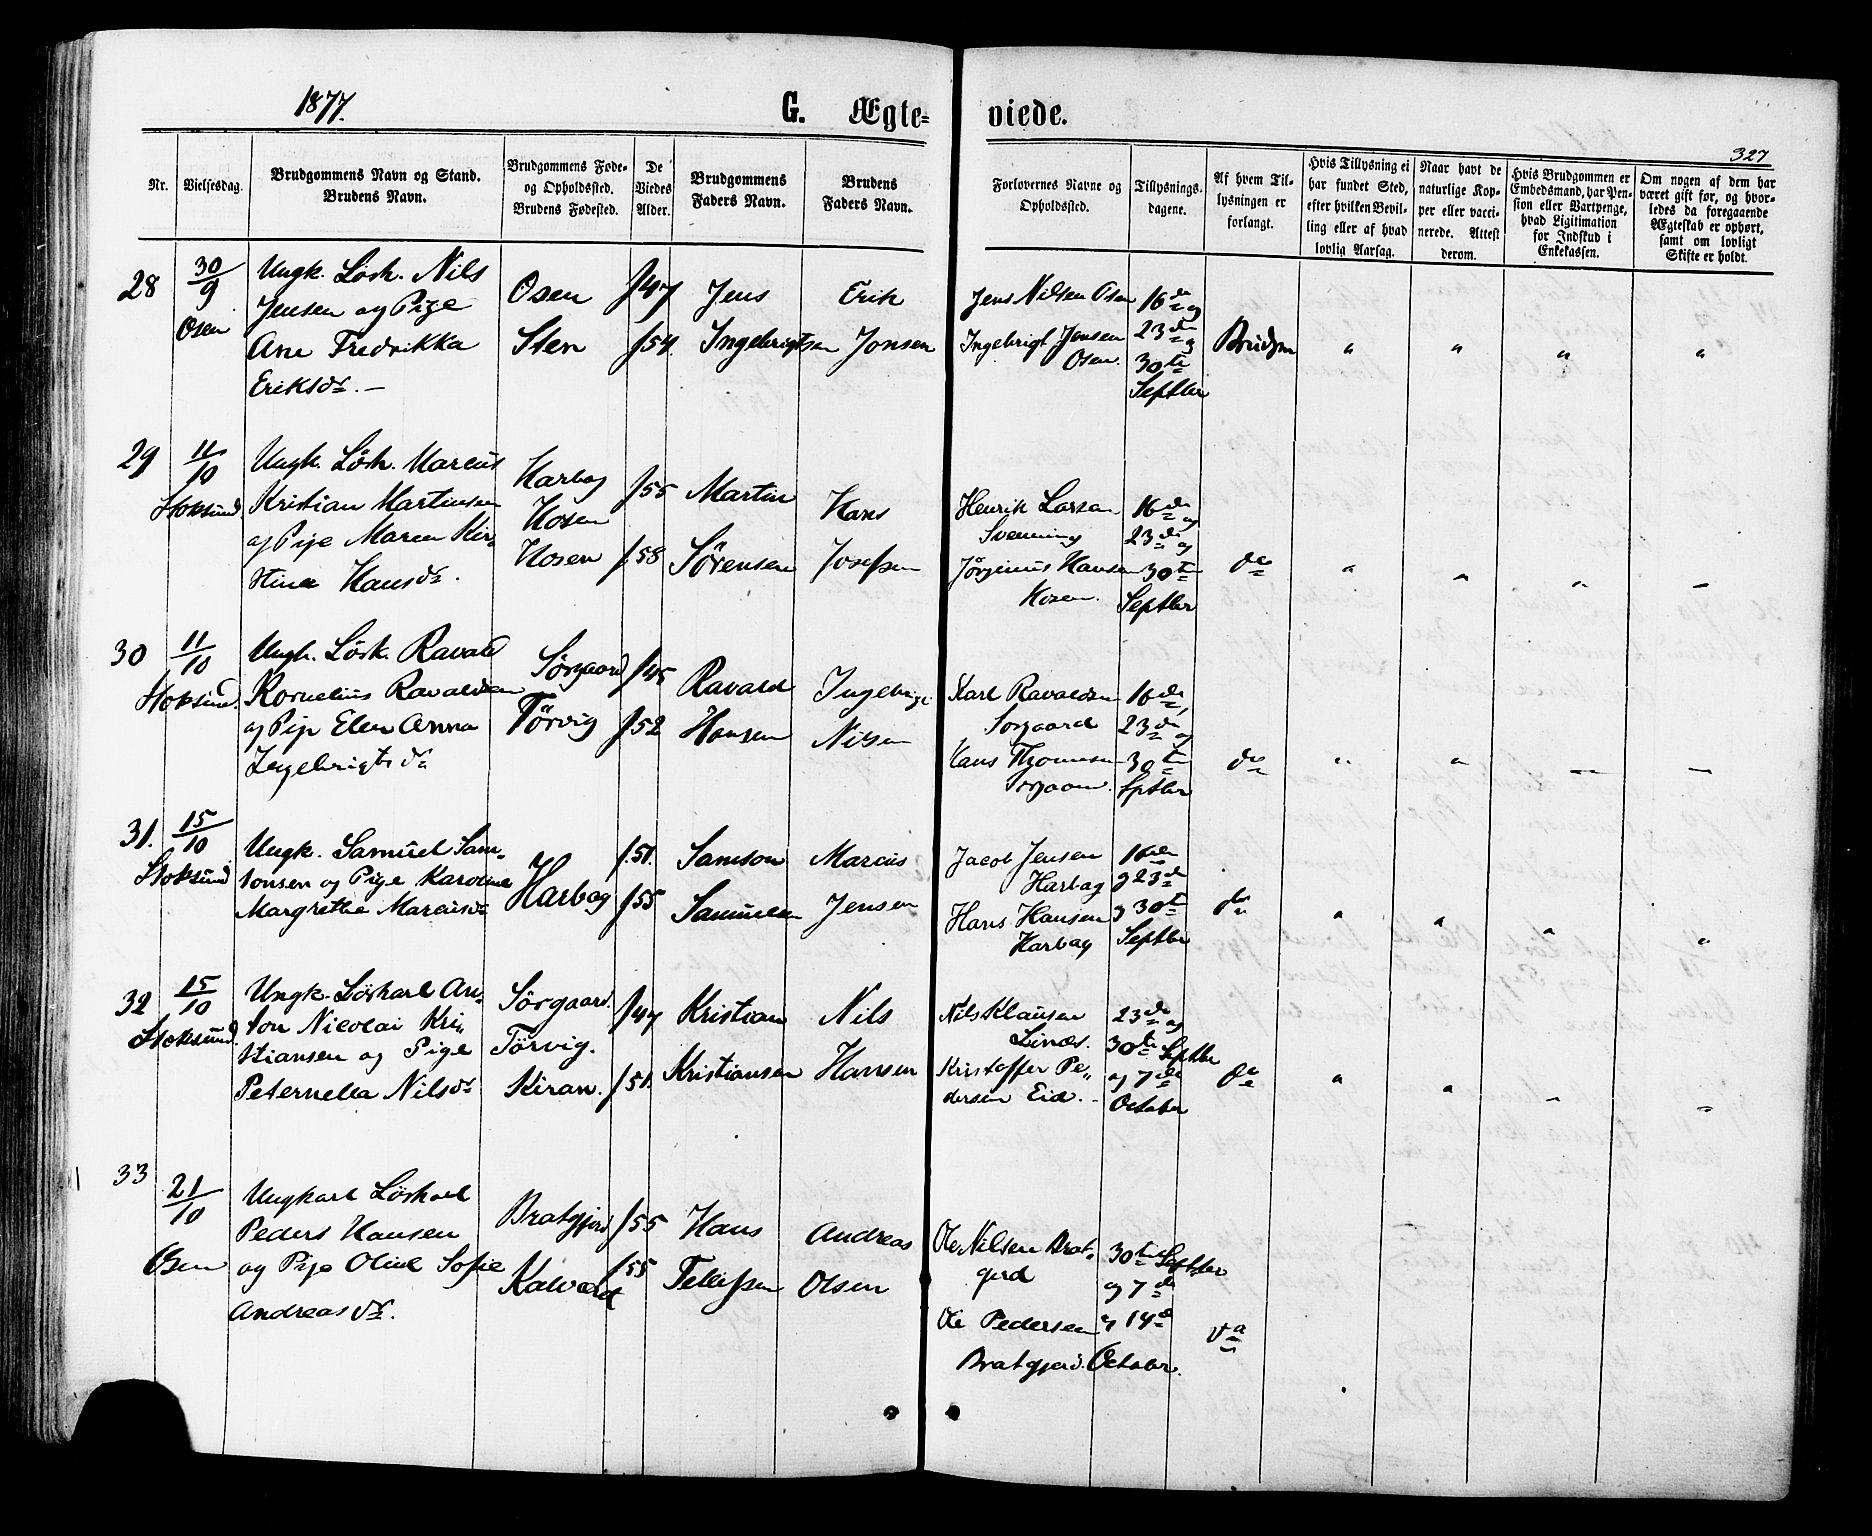 1877.
G. Ægte=
viede.
327
Nr.
Vielsesdag.
Brudgommens Navn og Stand.
Brudens Navn.
Brudgommens Føde-
og Opholdssted.
Brudens Fødested.
De
Viedes
Alder.
Brudgommens
Faders Navn.
Brudens
Faders Navn.
Forlovernes Navne og
Opholdssted.
Tillysnings-
dagene.
Af hvem Til-
lysningen er
forlangt.
Hvis Tillysning ei
har fundet Sted,
efter hvilken Bevil-
ling eller af hvad
lovlig Aarsag.
Naar havt de
naturlige Kop-
per eller vacci-
nerede. Attest
derom.
Hvis Brudgommen er
Embedsmand, har Pen-
sion eller Vartpenge,
hvad Legitimation
for Indskud i
Enkekassen.
Om nogen af dem har
været gift før, og hvor-
ledes da foregaaende
Ægteskab er ophørt,
samt om lovligt
Skifte er holdt.
28
30/9
Osen
Ungk. Løsk. Nils
Jensen og Pige
Ane Fredrikka
Eriksdr. —
Osen
Sten
f 47
f 54
Jens
Ingebrigtsen
Erik
Jonsen
Jens Nilsen Osen
Ingebrigt Jensen
Osen.
16de og
23de og
30te
Septbr
Brudgm
" " " "
29
11/10
Stoksund.
Ungk. Løsk. Marcus
Kristian Martinsen
og Pige Maren Kir-
stine Hansdr.
Harbag
Hosen
Hosen
f 55
f. 58
Martin
Sørensen
Hans
Josefsen
Henrik Larsen
Svenning
Jørginus Hansen
Hosen.
16de og
23de og
30te
Septbr
do
" " " —
30
11/10
Stoksund.
Ungk. Løsk. Ravald
Kornelius Ravaldsen
og Pige Elen Anna
Ingebrigtsdr
Sørgaard
Tørvig
f 45
f 52
Ravald
Hansen
Ingebrigt
Nilsen
Karl Ravaldsen
Sørgaard
Hans
16de,
23de og
30te
Septbr
do
" " — —
31.
15/10
Stoksund
Ungk. Samuel Sam-
sonsen og Pige Karoline
Margrethe Marcusdr
Harbag
f. 51.
f 55
Samson
Samuelsen
Marcus
Jensen
Jacob Jensen
Harbag
Hans Hansen
Harbag
16de
og 23de
og 30te
Septbr
do
" " " "
32
15/10
Stoksund.
Ungk. Løskarl An-
ton Nicolai Kri-
stiansen og Pige
Peternella Nilsdr
Sørgaard.
Tørvig.
Kiran.
f 47
f 51.
Kristian
Kristiansen
Nils
Hansen
Nils Klausen
Linæs.
Kristoffer Pe-
dersen Eid. -
23de og
30te Septbr
og 7de
October
do
" " " "
33
21/10
Osen
Ungkarl Løskarl
Peders Hansen
og Pige Oline Sofie
Andreasdr.
Bratgjerd
Kalvaa
f 55
f 55
Hans
Tellefsen
Andreas
Olsen
Ole Nilsen Brat-
gjerd
Ole Pedersen
Bratgjerd.
30te Septbr
og 7de
og 14de
October.
do